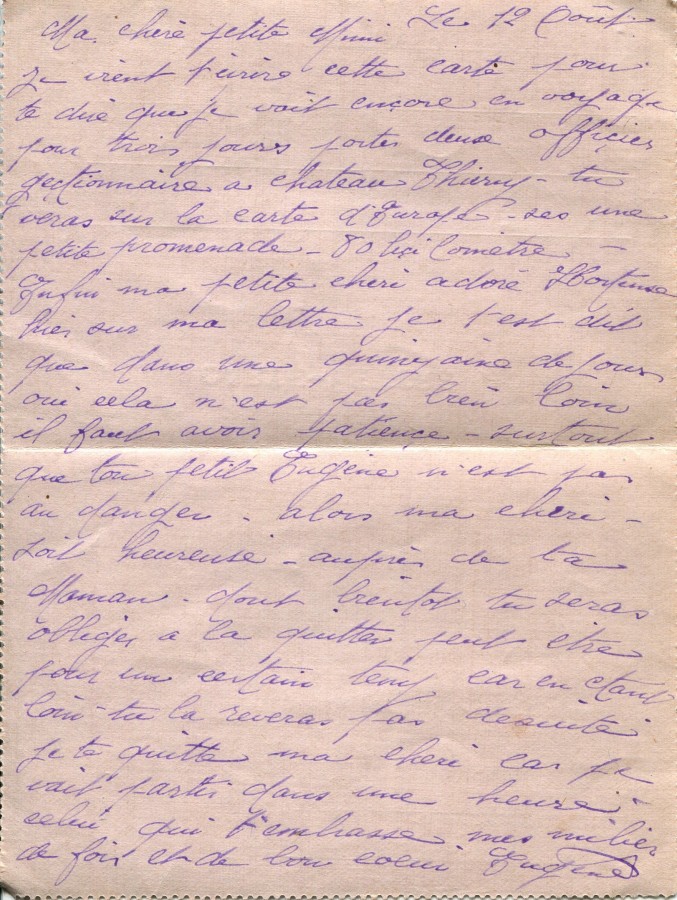 Ma chère petite Mimi Le 12 Août.
Je vient t'écrire cette carte pour
te dire que je vait encore en voyage
pour trois jours porter deuse officier
gectionnaire a chateau Thierry - tu
veras sur la carte d'Europe - ses une
petite promenade - 80 kilomètre -
Enfin ma petite cheri adoré Hortense
hier sur ma lettre je t'est dit
que dans une quinzaine de jours
oui cela n'est pas bien loin
il faut avoir patience - surtout
que ton petit Eugène n'est pas
au danger - alors ma cheri -
soit heureuse - auprès de ta
Maman - dont bientot tu seras
obliger a la quitter peut etre
pour un certain temp car en etant
loin - tu la reveras pas desuite
Je te quitte ma cheri car je
vait partir dans une heure -
celui qui t'embrasse mes milier
de fois et de bon coeur. Eugène